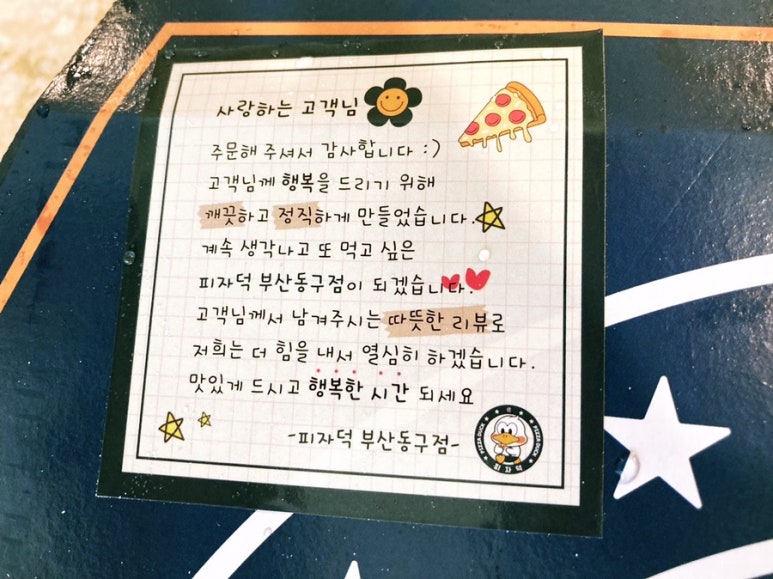 사랑하는 고객님
주문해 주셔서 감사합니다 :)
고객님께 행복을 드리기 위해
깨끗하고 정직하게 만들었습니다.
계속 생각나고 또 먹고 싶은
피자덕 부산동구점이 되겠습니다.
고객님께서 남겨주시는 따뜻한 리뷰로
저희는 더 힘을 내서 열심히 하겠습니다.
맛있게 드시고 행복한 시간 되세요
-피자덕 부산동구점-
PIZZA DUCK
PIZZA DUCK
피자덕